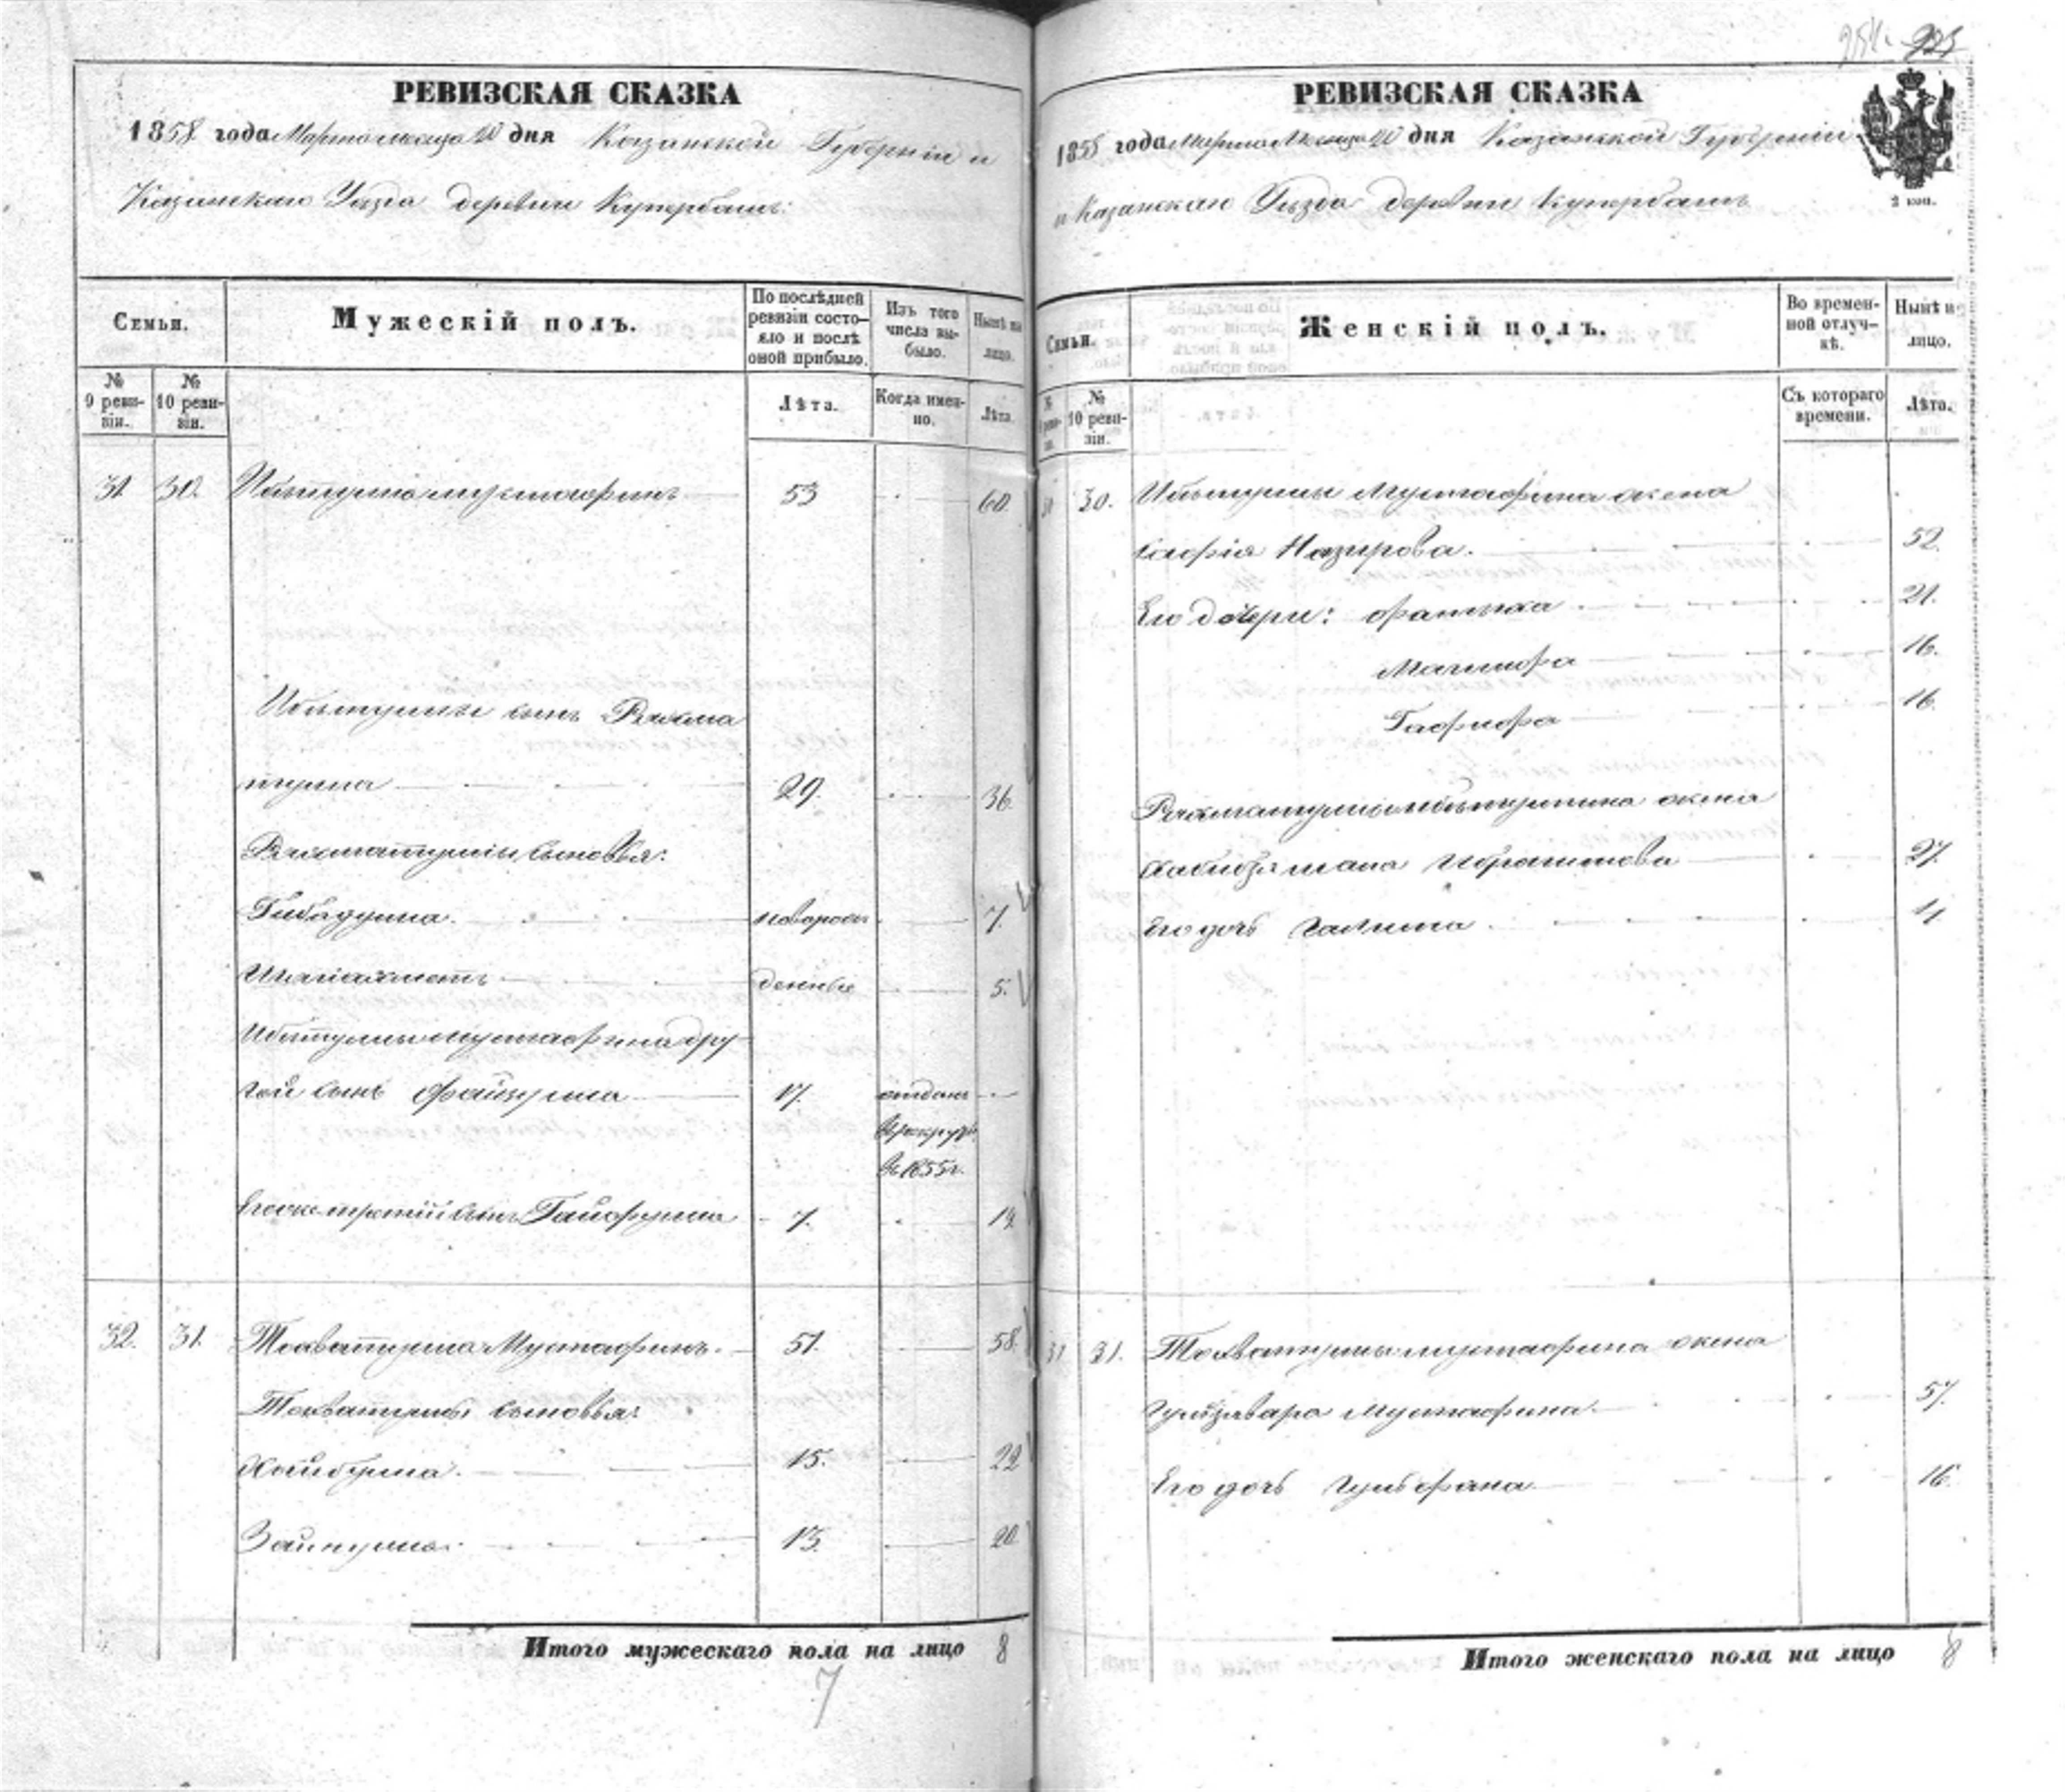 РЕВИЗСКАЯ СКАЗКА
1858 года Марта месяца 20 дня Казанской Губерніи и
Казанскаго Уѣзда деревни Купербашъ:
Семьи.
Мужескій полъ.
По послѣдней ревизіи состояло и послѣ оной прибыло.
Изъ того числа выбыло.
Нынѣ на лицо.
№ 9 ревизіи.
№ 10 ревизіи.
Лѣта.
Когда именно.
Лѣта.
31 30. Ибетулла Мустафинъ 53 60.
Ибетуллы сынъ Рахма
тулла 29. 36.
Рахматуллы сыновья:
Гибадулла. новорож 7.
денные 5.
Ибетуллы Мустафина дру
гой сынъ Файзулла 17. отданъ
въ рекруты
въ 1855 г.
Его же третій сынъ Гайфулла 7. 14.
32. 31. Тохватулла Мустафинъ. 51. 58.
Тохватуллы сыновья:
Хайбулла. 15. 22
Зайнулла. 13. 20
Итого мужескаго пола на лицо 8
7
925
РЕВИЗСКАЯ СКАЗКА
1858 года Марта Месяца 20 дня Казанской Губерніи
и Казанскаго Уѣзда деревни Купербашъ
2 коп.
Семьи.
Женскій полъ.
Во временной отлучкѣ.
Нынѣ на лицо.
№ 10 ревизіи.
Съ котораго времени.
Лѣта.
31 30. Ибетуллы Мустафина жена
Сафія Назирова. 52.
Его дочери: Фатыха 21.
16.
16.
Рахматуллы Ибетуллина жена
Хабибзямала Ибрагимова 27.
Его дочь Галима. 11.
31. Тохватуллы Мустафина жена
Гульзявара Мустафина. 57.
Его дочь Гульбфана 16.
Итого женскаго пола на лицо 8